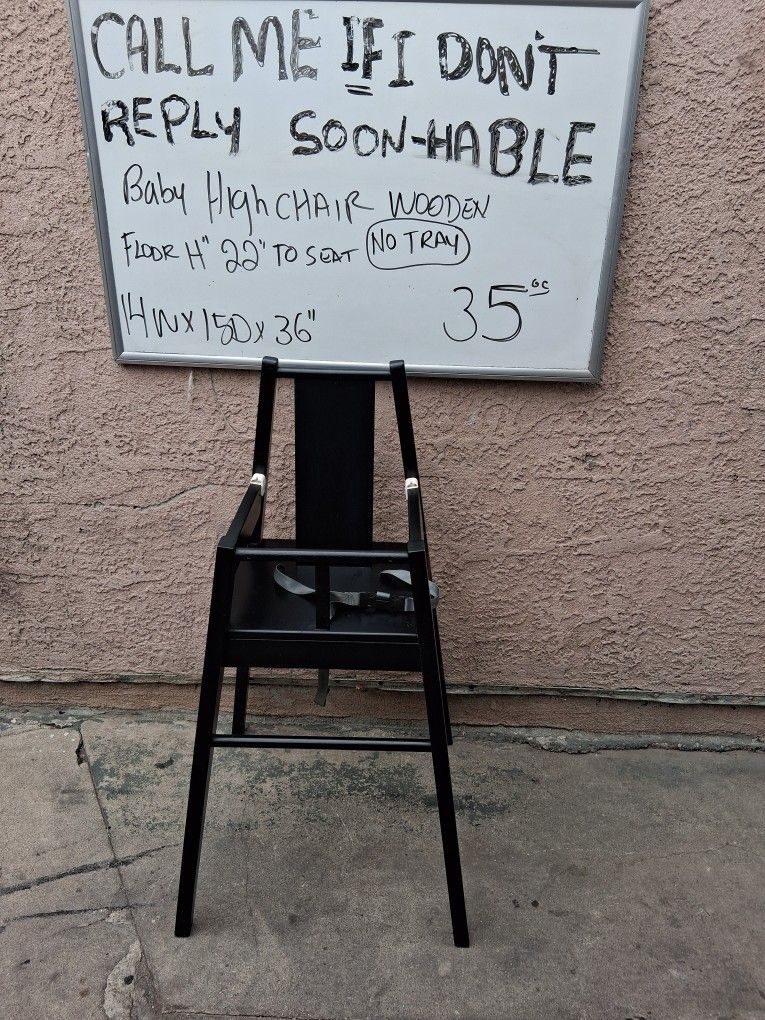 CALL ME IF I DON'T
REPLY SOON-HABLE
Baby High CHAIR WOODEN
FLOOR H" 22" TO SEAT NO TRAY
14W x 15D x 36" 35 00